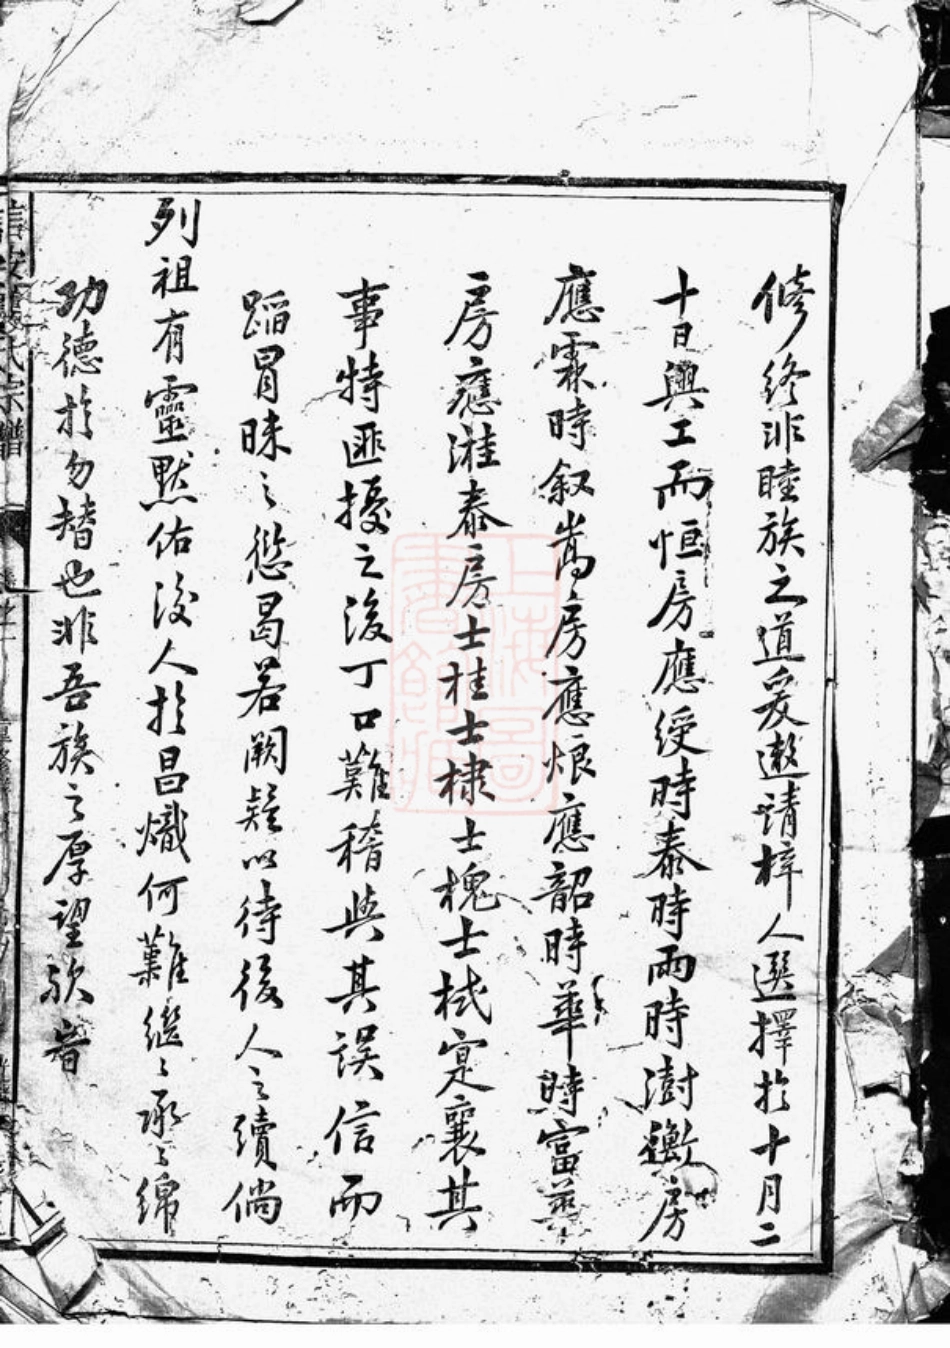 脩終非睦族之道爰邀請梓人選擇於十月二
十日興工而恒房應綬時泰時兩時澍房
應霖時叙嵩房應烺應韶時華時富
房應漋泰房士桂士棣士槐士棫寔襄其
事特匪擾之後丁口難稽與其誤信而
蹈冒昧之愆曷若闕疑以待後人之續倘
列祖有靈默佑後人於昌熾何難繼〻承〻綿
功德於勿替也非吾族之厚望歟旹
氏宗譜